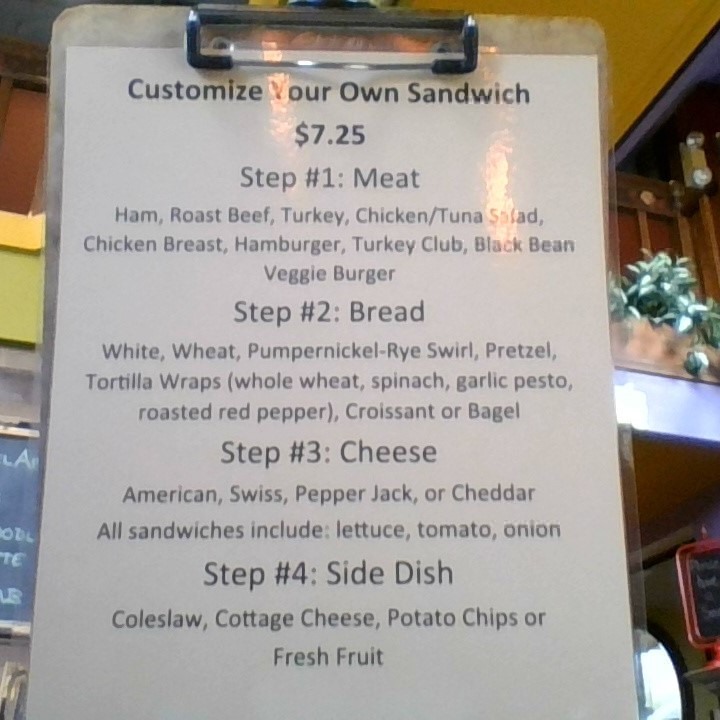 Customize Your Own Sandwich
$7.25
Step #1: Meat
Ham, Roast Beef, Turkey, Chicken/Tuna Salad,
Chicken Breast, Hamburger, Turkey Club, Black Bean
Veggie Burger
Step #2: Bread
White, Wheat, Pumpernickel-Rye Swirl, Pretzel,
Tortilla Wraps (whole wheat, spinach, garlic pesto,
roasted red pepper), Croissant or Bagel
Step #3: Cheese
American, Swiss, Pepper Jack, or Cheddar
All sandwiches include: lettuce, tomato, onion
Step #4: Side Dish
Coleslaw, Cottage Cheese, Potato Chips or
Fresh Fruit